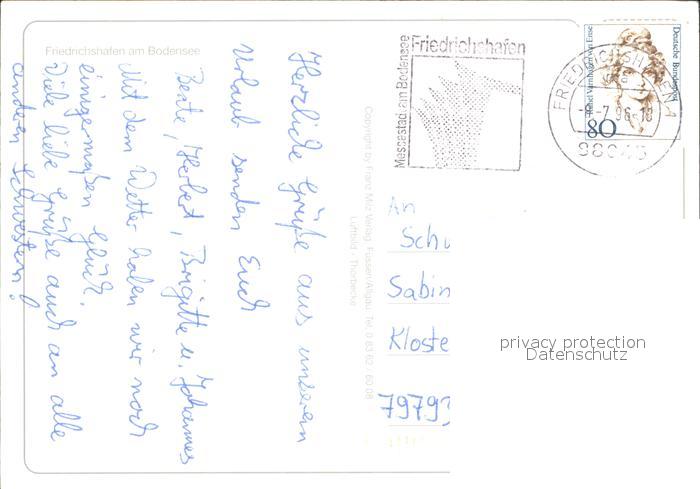 Friedrichshafen am Bodensee
Herzliche Grüße aus unserem
Urlaub senden Euch
Beate, Herbert, Brigitte u. Johannes
Mit dem Wetter haben wir noch
einigermaßen Glück.
Viele liebe Grüße auch an alle
anderen Schwestern!
Copyright by Franz Milz Verlag, Füssen/Allgäu, Tel. 0 83 62 / 60 08
Luftbild - Thorbecke
Messestadt am Bodensee
Friedrichshafen
FRIEDRICHSHAFEN 1
-7.96-18
88045
Deutsche Bundespost
Rahel Varnhagen von Ense
80
An
Schw
Sabin
Kloste
7979
privacy protection
Datenschutz